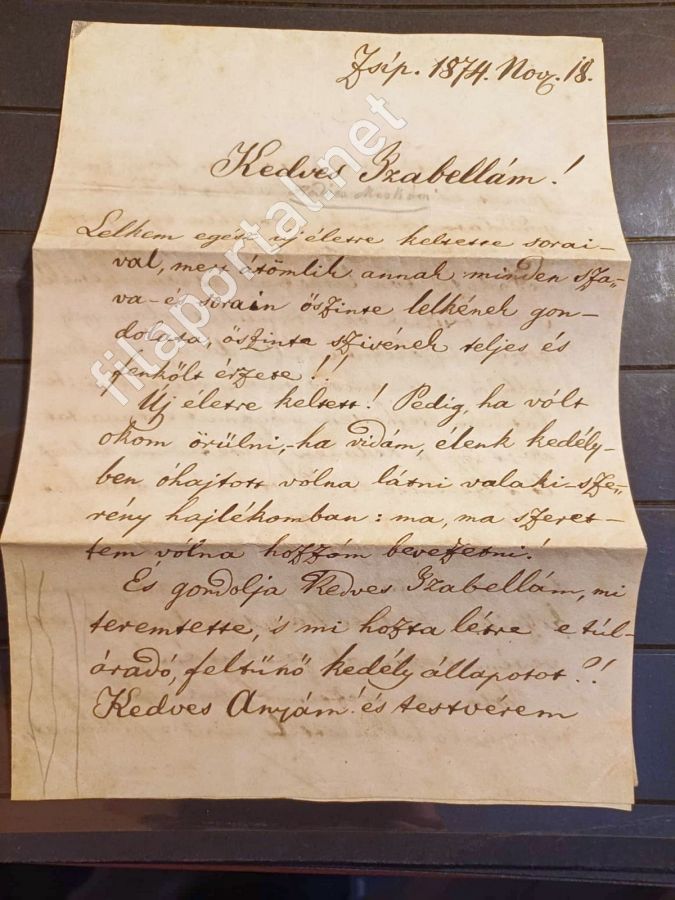 Zsip. 1874. Nov. 18.
Kedves Izabellám!
Lelkem egész uj életre keltette sorai-
val, mert átömlik annak minden sza„
va- és sorain őszinte lelkének gon-
dolata, őszinte szivének teljes és
fenkölt érzete!!
Új életre keltett! Pedig, ha vólt
okom örülni,-ha vidám, élenk kedély-
ben óhajtott vólna látni valaki-sze„
rény hajlékomban: ma, ma szeret-
tem vólna hozzám bevezetni!
És gondolja Kedves Izabellám, mi
teremtette, 's mi hozta létre e túl-
áradó, feltünő kedély állapotot?!
Kedves Anyám! és testvérem
filaportal.net